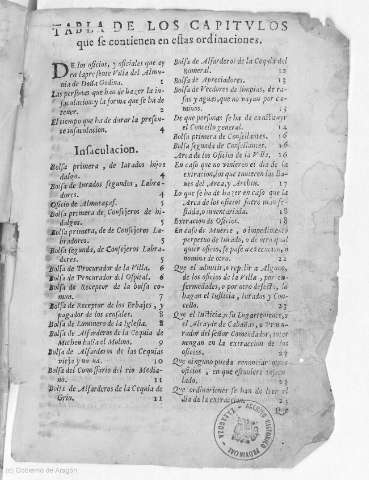 TABLA DE LOS CAPITVLOS
que se contienen en estas ordinaciones.
DE los oficios, y oficiales que ay
en la presente Villa del Almu-
nia de Doña Godina. 1
Las personas que han de hazer la in-
saculacion: y la forma que se ha de
tener. 2
El tiempo que ha de durar la presen-
te insaculacion. 4
Insaculacion.
Bolsa primera, de Iurados hijos
dalgo. 4
Bolsa de Iurados segundos, Labra-
dores. 5
Oficio de Almotaçaf. 5
Bolsa primera de Consejeros de in-
dalgos. 5
Bolsa primera, de Consejeros La-
bradores. 5
Bolsa segunda, de Consejeros Labra-
dores. 5
Bolsa de Procurador de la Villa. 6
Bolsa de Procurador del Ospital. 6
Bolsa de Receptor de la bolsa co-
mun. 7
Bolsa de Receptor de los Erbajes, y
pagador de los censales. 8
Bolsa de Luminero de la Iglesia. 8
Bolsa de Alfarderos de la Cequia de
Michen hasta el Molino. 9
Bolsa de Alfarderos de las Cequias
vieja y nueva. 10
Bolsa del Comissario del rio Media-
no. 11
Bolsa de Alfarderos de la Cequia de
Grio, 11
Bolsa de Alfarderos de la Cequia del
Romeral. 12
Bolsa de Apreciadores. 13
Bolsa de Veedores de limpias, de ra-
sas y aguas, que no vayan por ca-
minos, 13
De que personas se ha de exactiar
el Concello general. 14
Bolsa primera de Consellantes. 16
Bolsa segunda de Consellantes. 16
Arca de los Oficios de la Villa. 16
En caso que no viniere el dia de la
extraccion, los que tuvieren las lla-
ves del Arca, y Archiu. 17
Lo que se ha de hazer en caso que la
Arca de los oficios fuere mani-
festada, o inventariada. 18
Extraccion de Oficios. 18
En caso de Muerte, o impedimento
perpetuo de Iurado, o de otro qual
quier oficio, se passe a extraccion, o
nomina de otro. 22
Que el admitir, o repelir a Alguno,
de los oficios de la Villa, por en-
fermedades, o por otro defecto, lo
hagan el Iusticia, Iurados y Con-
cello. 23
Que el Iusticia, y su Lugarteniente, y
el Alcayde de Caballos, o Procu-
rador del señor Comendador, inter-
vengan en la extraccion de los
oficios. 23
Que ninguno pueda renunciar
oficios, en que estuviere insacu-
lado, 23
Que ordinaciones se han de leer el
dia de la extraccion. 23
(c) Gobierno de Aragón